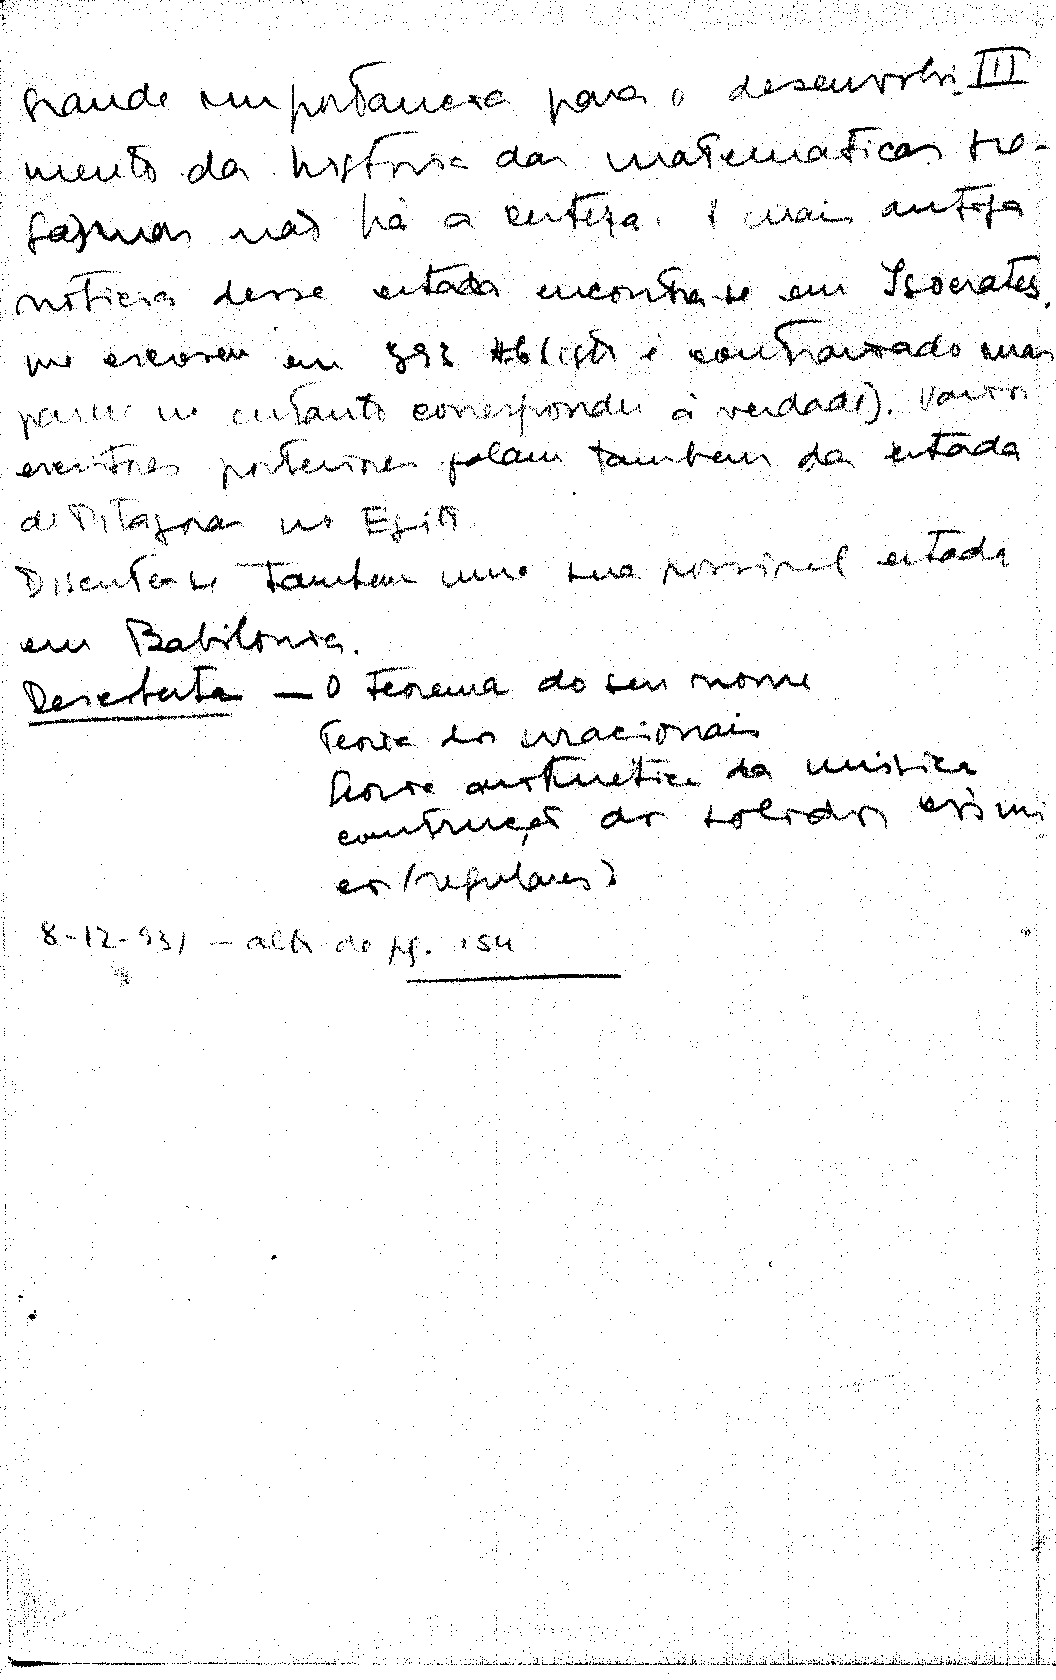 III
grande importancia para o desenvolvi-
mento da história das matematicas
não há a certeza. A mais antiga
noticia desse estada encontra-se em Isocrates,
que escreveu em 393 (isto é contrariado mas
parece no entanto corresponder à verdade). Varios
escritores posteriores falam tambem da estada
de Pitagoras no Egito
Discute-se tambem uma sua possivel estada
em Babilonia.
Descoberta — O teorema do seu nome
Teoria dos irracionais
Teoria aritmetica da musica
construção dos solidos cósmi
cos (regulares)
8-12-931 — alto do pg. 154